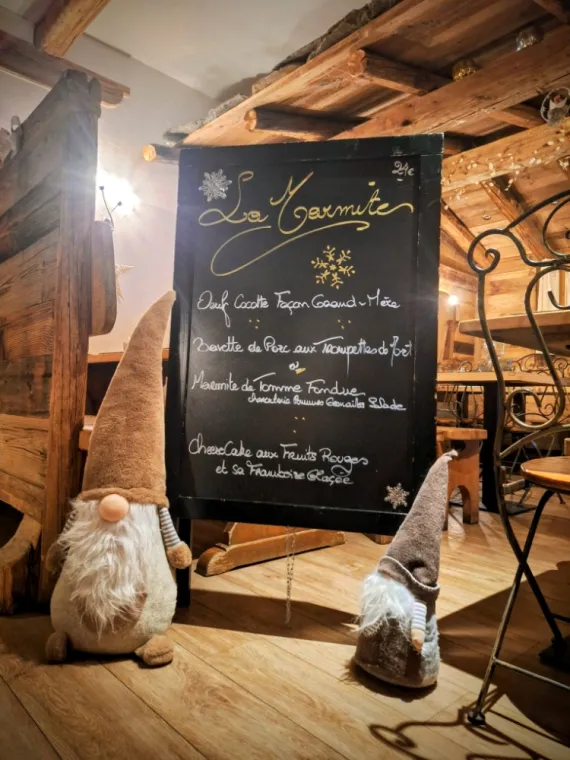 24€
La Marmite
Oeuf Cocotte Façon Grand-Mère
Bavette de Porc aux Trompettes de
ou
Marmite de Tomme Fondue
Charcuterie Pommes Grenailles Salade
CheeseCake aux Fruits Rouges
et sa Framboise Glaçée